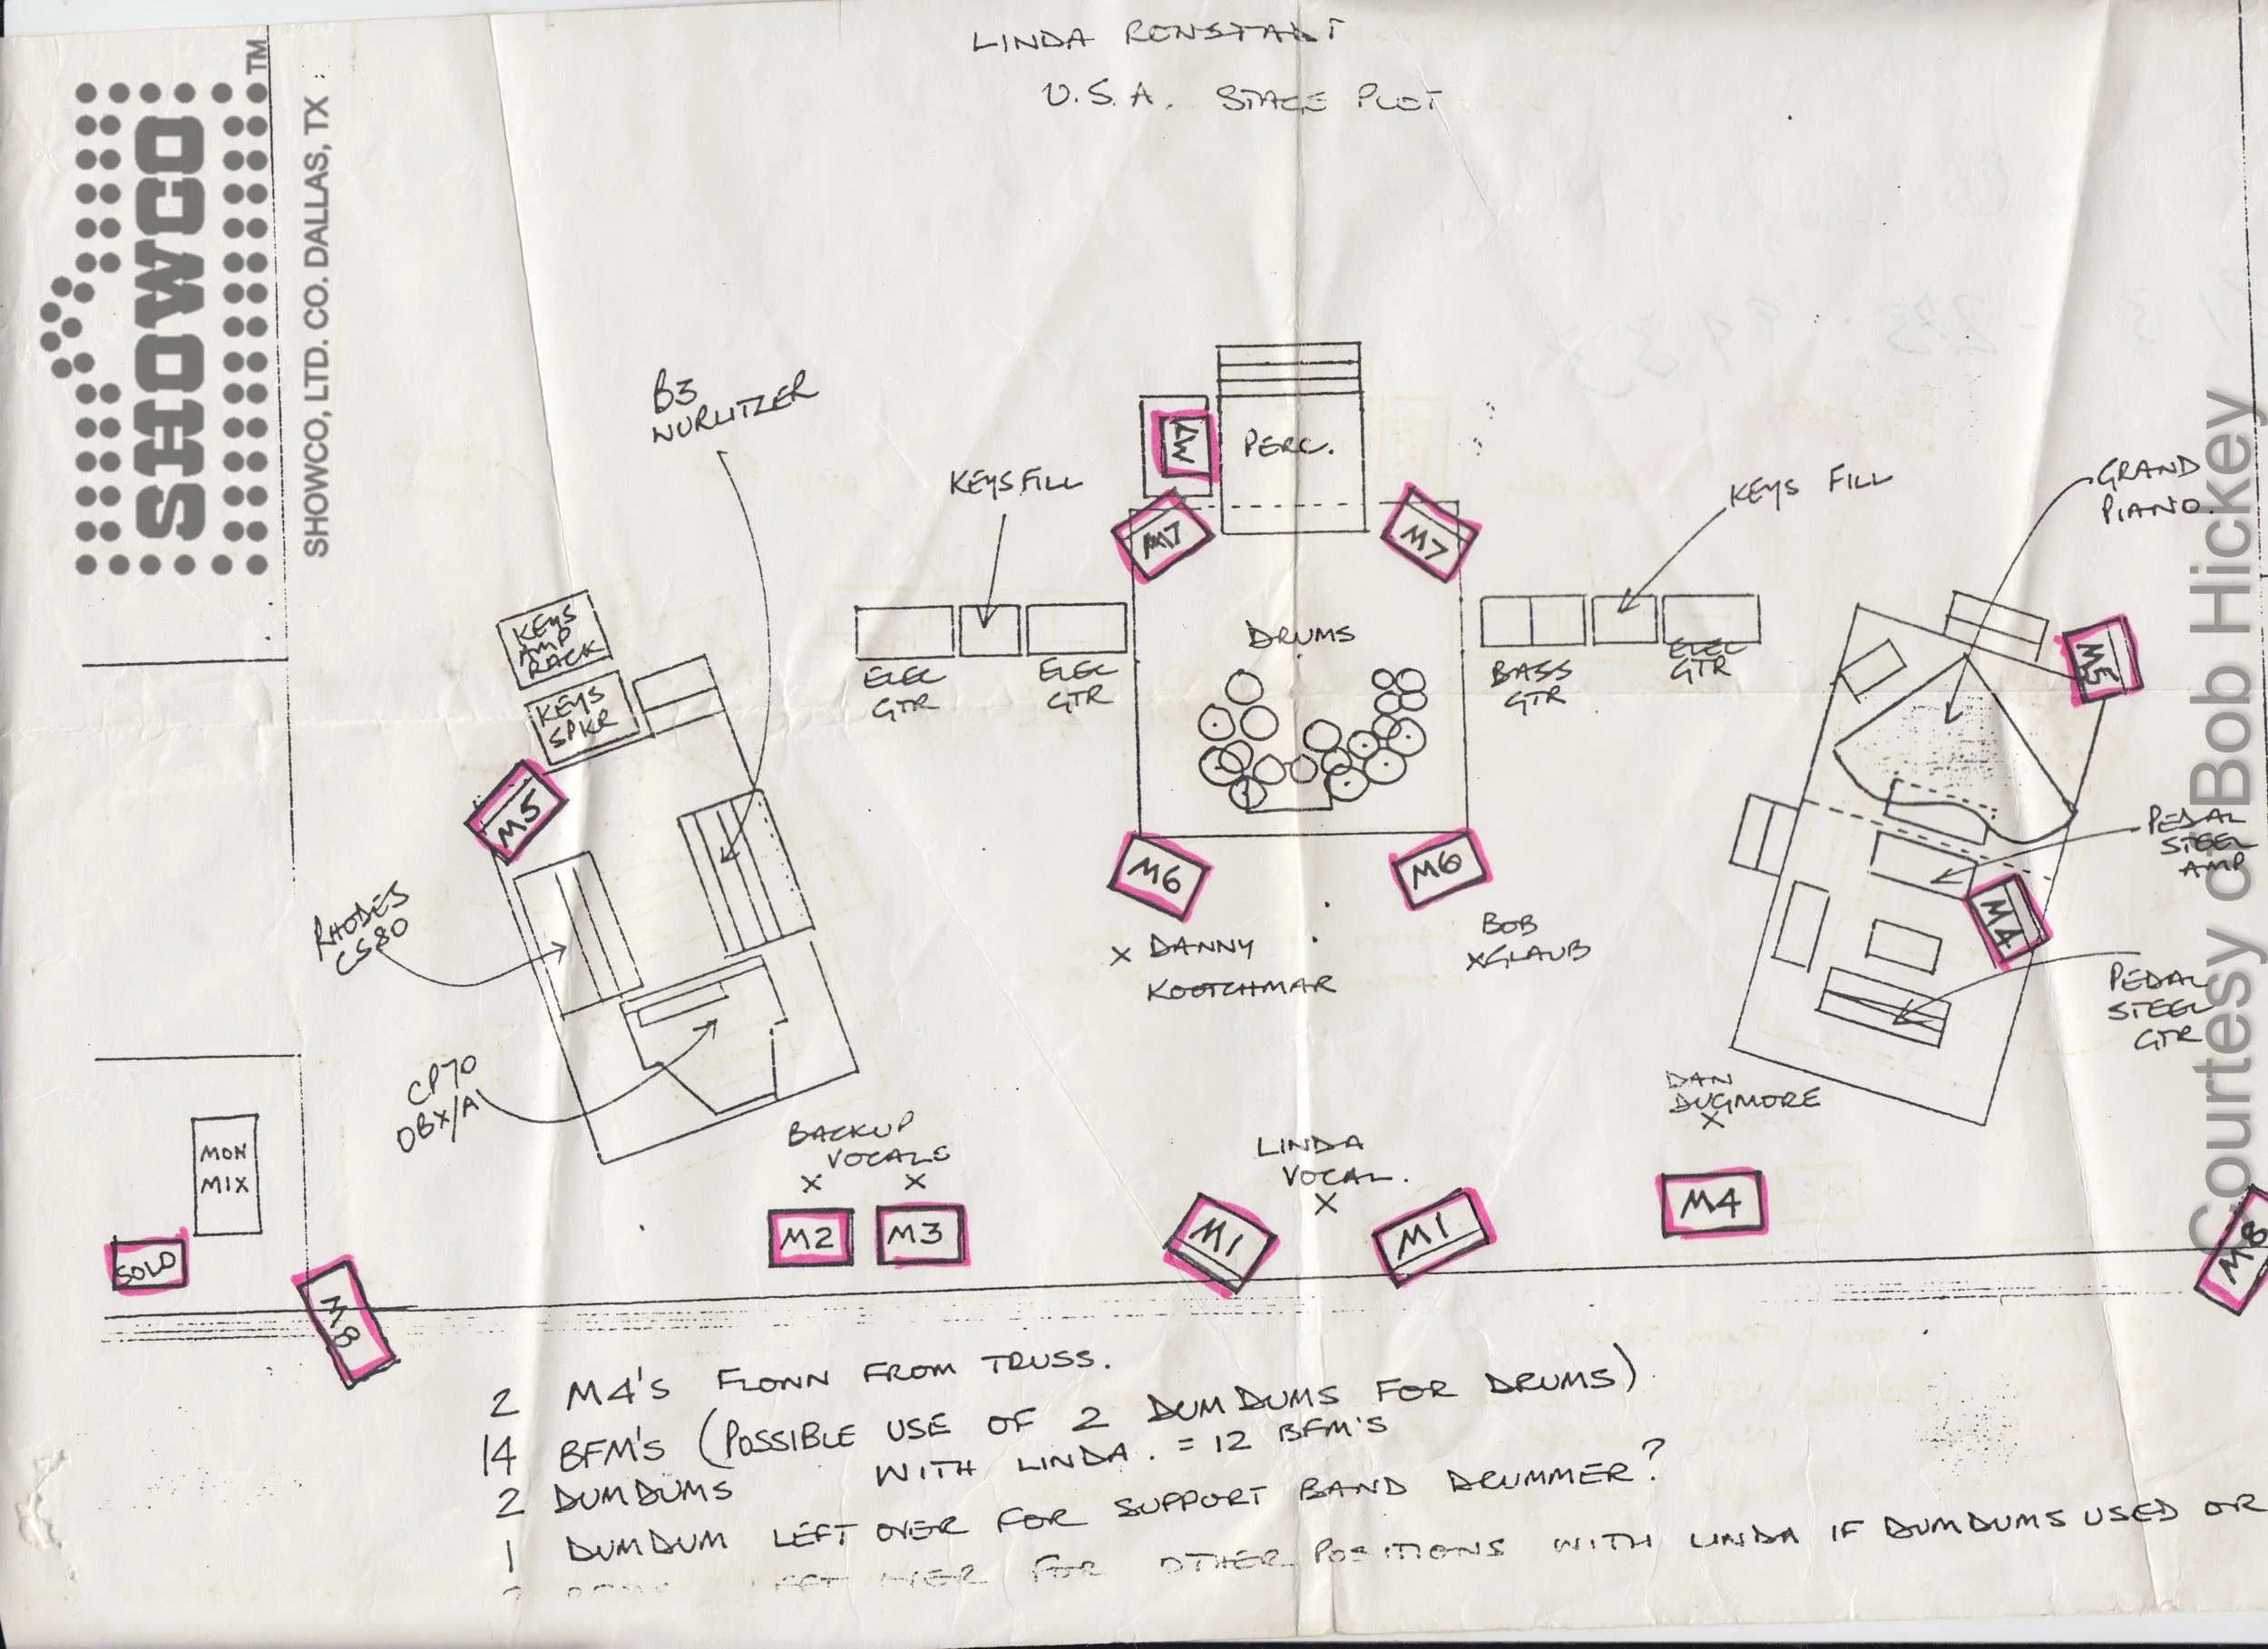 LINDA RONSTADT
U.S.A. STAGE PLOT
SHOWCO
TM
SHOWCO, LTD. CO. DALLAS, TX
B3
WURLITZER
KEYS FILL
M7
PERC.
M7
M7
KEYS FILL
GRAND
PIANO.
KEYS
AMP
RACK
KEYS
SPKR
ELEC
GTR
ELEC
GTR
DRUMS
BASS
GTR
ELEC
GTR
M5
M5
RHODES
CS80
M6
M6
PEDAL
STEEL
AMP
M4
X DANNY
KOOTCHMAR
BOB
XGLAUB
PEDAL
STEEL
GTR
CP70
OBX/A
DAN
DUGMORE
X
MON
MIX
BACKUP
VOCALS
X X
LINDA
VOCAL.
X
SOLO
M8
M2
M3
M1
M1
M4
M8
2 M4'S FLOWN FROM TRUSS.
14 BFM'S (POSSIBLE USE OF 2 DUMDUMS FOR DRUMS)
WITH LINDA. = 12 BFM'S
2 DUMDUMS
1 DUMDUM LEFT OVER FOR SUPPORT BAND DRUMMER?
OVER FOR OTHER POSITIONS WITH LINDA IF DUMDUMS USED OR
Courtesy of Bob Hickey